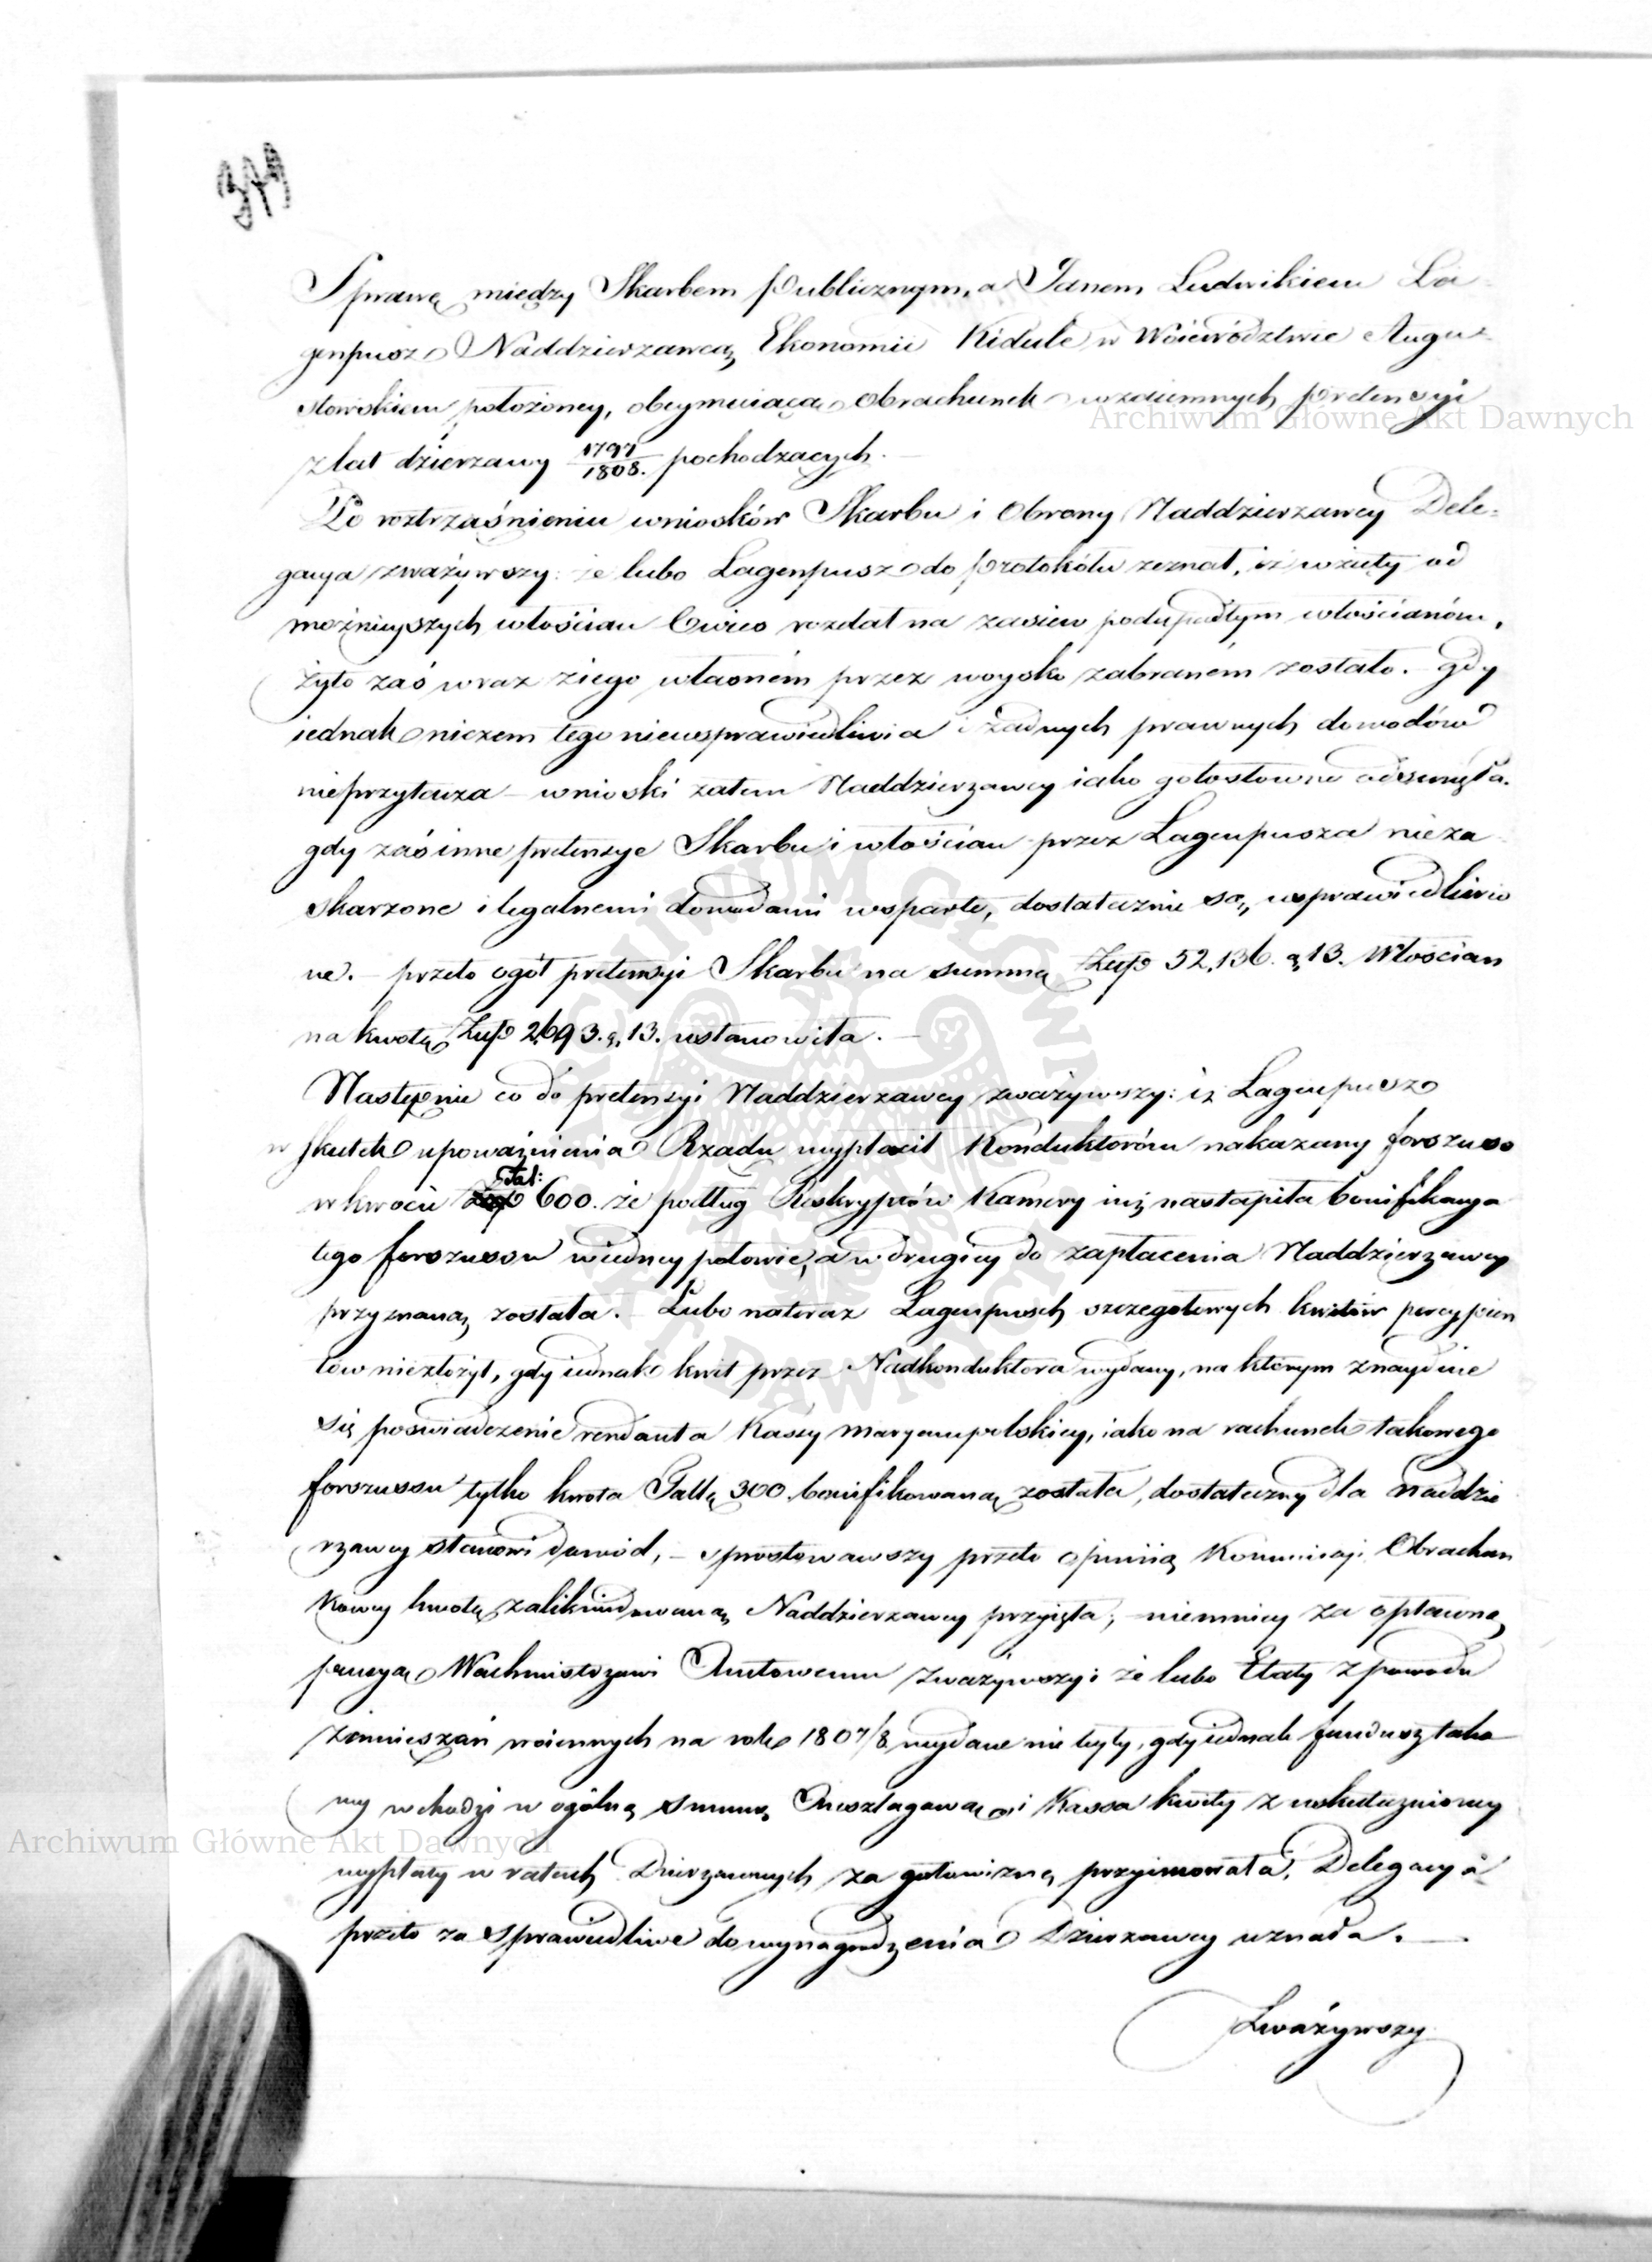 379
Sprawę między Skarbem Publicznym, a Janem Ludwikiem La-
genpusz Naddzierzawcą Ekonomii Kidule w Woiewództwie Augu-
stowskiem położoney, obeymuiącą Obrachunek wzaiemnych pretensyi
Archiwum Główne Akt Dawnych
z lat dzierzawy 1797/1808. pochodzących.
Po roztrząśnieniu wniosków Skarbu i Obrony Naddzierzawcy Dele-
gacya zważywszy: że lubo Lagenpusz do protokółu zeznał, iż wzięty od
możnieyszych włościan Owies rozdał na zasiew podupadłym włościanom,
żyto zaś wraz z iego własnem przez woysko zabranem zostało. gdy
iednak niczem tego nieusprawiedliwia i żadnych prawnych dowodów
nieprzytacza – wnioski zatem Naddzierzawcy iako gołosłowne odsunęła.
gdy zaś inne pretensye Skarbu i włościan przez Lagenpusza nieza-
skarzone i legalnemi dowodami wsparte, dostatecznie są usprawiedliwio
ne. – przeto ogół pretensyi Skarbu na summę Złp 52,136. g. 13. Włościan
na kwotę Złp 2,693. g. 13. ustanowiła. –
Następnie co do pretensyi Naddzierzawcy zważywszy: iż Lagenpusz
w skutek upoważnienia Rządu wypłacił Konduktorom nakazany forszus
w kwocie Tal: 600. że podług Reskryptów Kamery iuż nastąpiła bonifikacya
tego forszussu w iedney połowie, a w drugiey do zapłacenia Naddzierzawcy
przyznaną została. – Lubo nateraz Lagenpusch szczegołowych kwitów percypien
tów niezłożył, gdy iednak kwit przez Nadkonduktora wydany, na którym znayduie
się poświadczenie rendanta Kassy Maryampolskiey, iako na rachunek takowego
forszussu tylko kwota Tall. 300. bonifikowaną została, dostateczny dla Naddzie
rzawcy stanowi dowód, – sprostowawszy przeto opiniią Kommissyi Obrachun
kowey kwotę zalikwidowaną Naddzierzawcy przyięła; – niemniey za opłaconą
pensyą Wachmistrzowi Amtowemu zważywszy: że lubo Etaty z powodu
zamieszań woiennych na rok 1807/8 wydane nie były, gdy iednak fundusz tako
wy wchodzi w ogólną summę Anszlagową i Kassa kwity z uskuteczniony
Archiwum Główne Akt Dawnych
wypłaty w ratach Dzierzawnych za gotowiznę przyimowała, Delegacya
przeto za sprawiedliwe do wynagrodzenia Dzierzawcy uznała. –
Zważywszy
ARCHIWUM GŁÓWNE AKT DAWNYCH